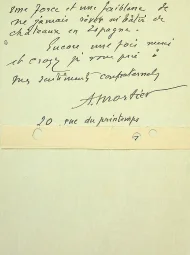 une force et une faiblesse de
ne jamais rêver
châteaux en Espagne.
Encore une fois merci
et croyez je vous prie à
mes sentiments confraternels
A. Mortier
20 rue du printemps